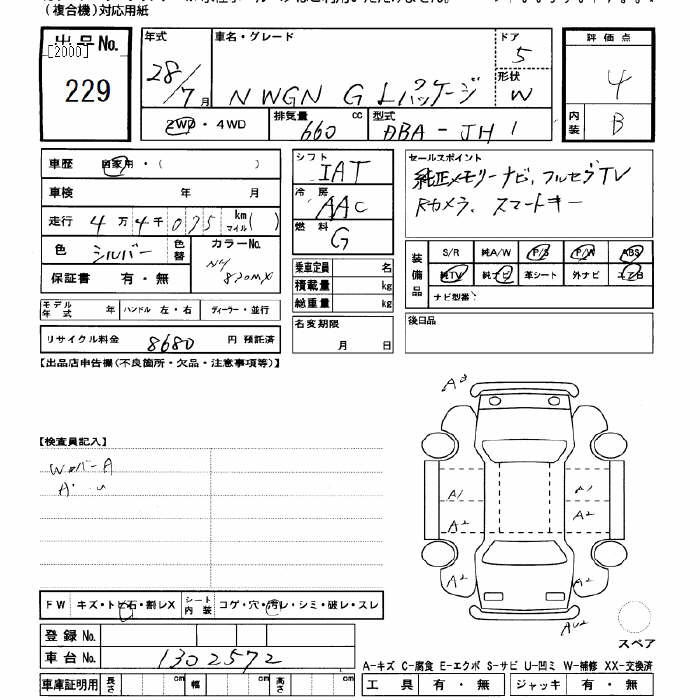 (複合機)対応用紙
出品No. 229
[2000]
年式 28/7月
車名・グレード N WGN G Lパッケージ
ドア 5
形状 W
評価点 4
内装 B
2WD・4WD
排気量 660 cc
型式 DBA-JH1
車歴 自家用・( )
車検 年 月
走行 4万4千075 km マイル( )
色 シルバー 色替
カラーNo. NH 820MX
保証書 有・無
モデル年式 年 ハンドル 左・右 ディーラー・並行
リサイクル料金 8680 円 預託済
シフト IAT
冷房 AAC
燃料 G
乗車定員 名
積載量 kg
総重量 kg
名変期限 月 日
セールスポイント
純正メモリーナビ、フルセグTV
Rカメラ、スマートキー
装備品 S/R 純A/W P/S P/W ABS
純TV 純ナビ 革シート 外ナビ エアB
ナビ型番
後日品
【出品店申告欄(不良箇所・欠品・注意事項等)】
【検査員記入】
A1 A1
A2 A2
A2 A2
FW キズ・トビ石・割レX シート内装 コゲ・穴・汚レ・シミ・破レ・スレ
登録No.
車台No. 1302572
スペア
A-キズ C-腐食 E-エクボ S-サビ U-凹ミ W-補修 XX-交換済
車庫証明用 長さ cm 幅 cm 高さ cm
工具 有・無 ジャッキ 有・無